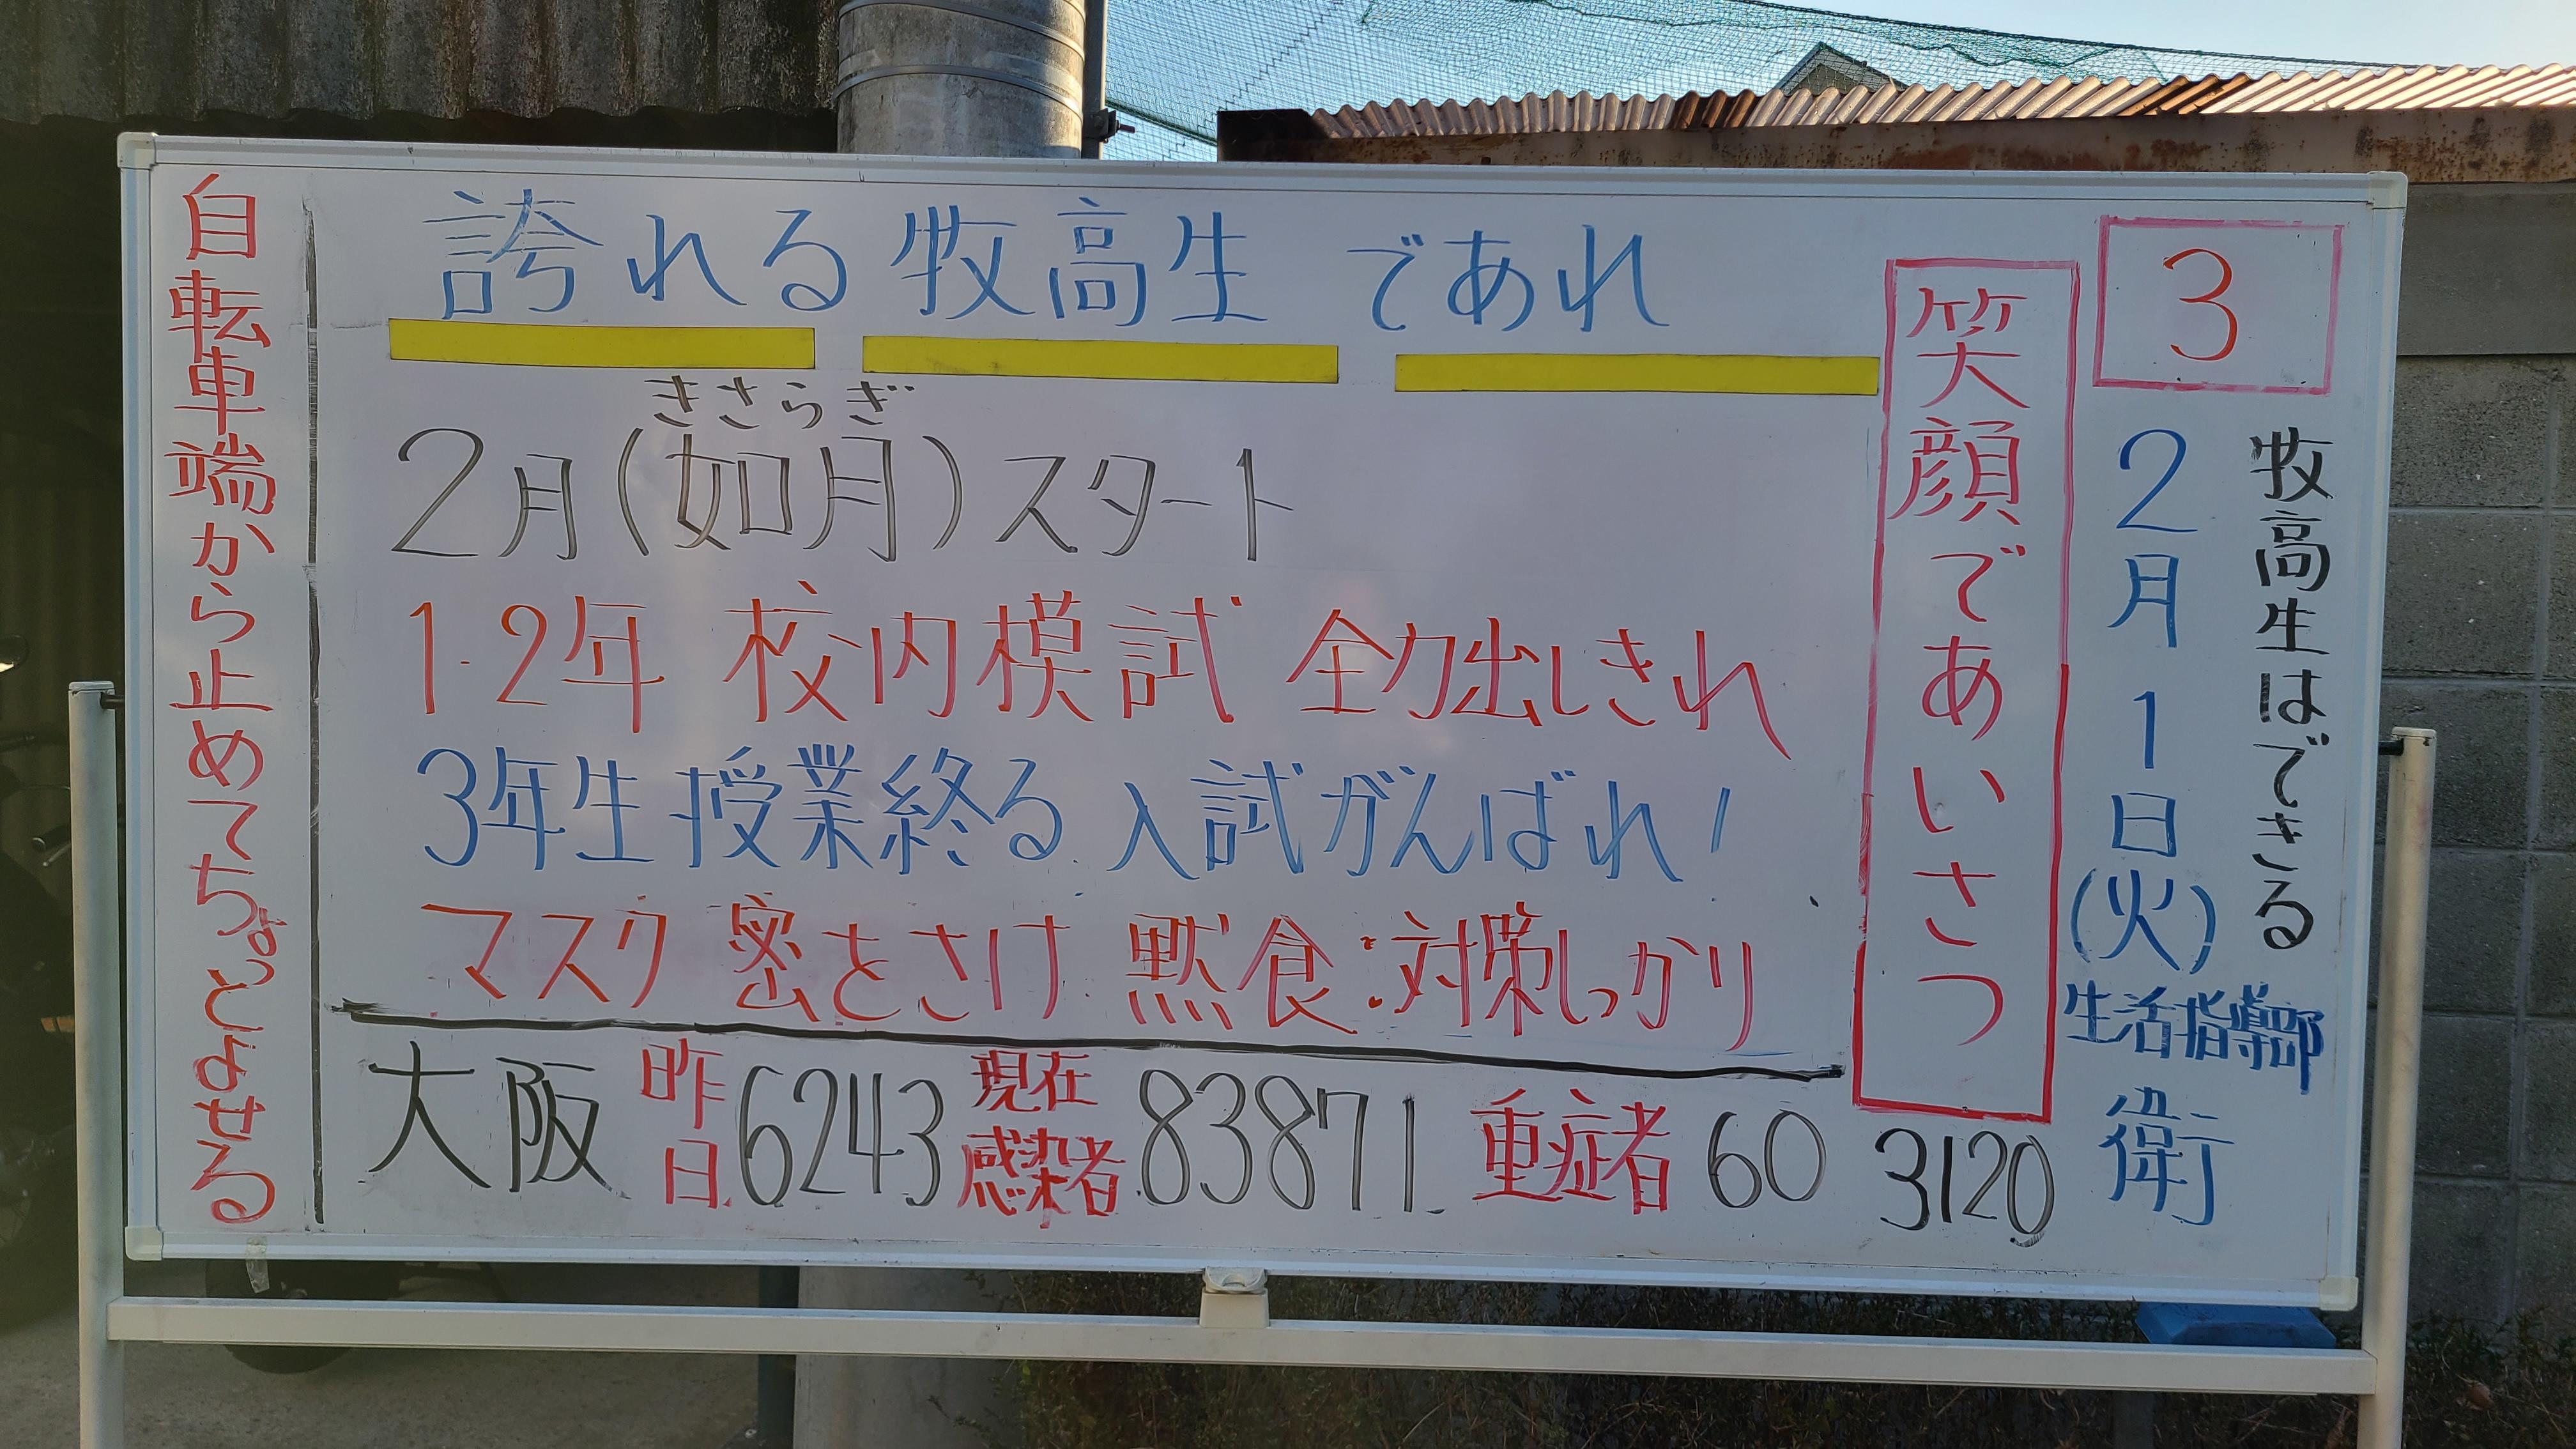 3
牧高生はできる
2月1日(火)
生活指導部
衛
笑顔であいさつ
3120
誇れる牧高生であれ
きさらぎ
2月(如月)スタート
1・2年 校内模試 全力出しきれ
3年生授業終る 入試がんばれ!
マスク 密をさけ 黙食:対策しっかり
大阪 昨日 6243 現在感染者 83871 重症者 60
自転車端から止めてちょっとよせる